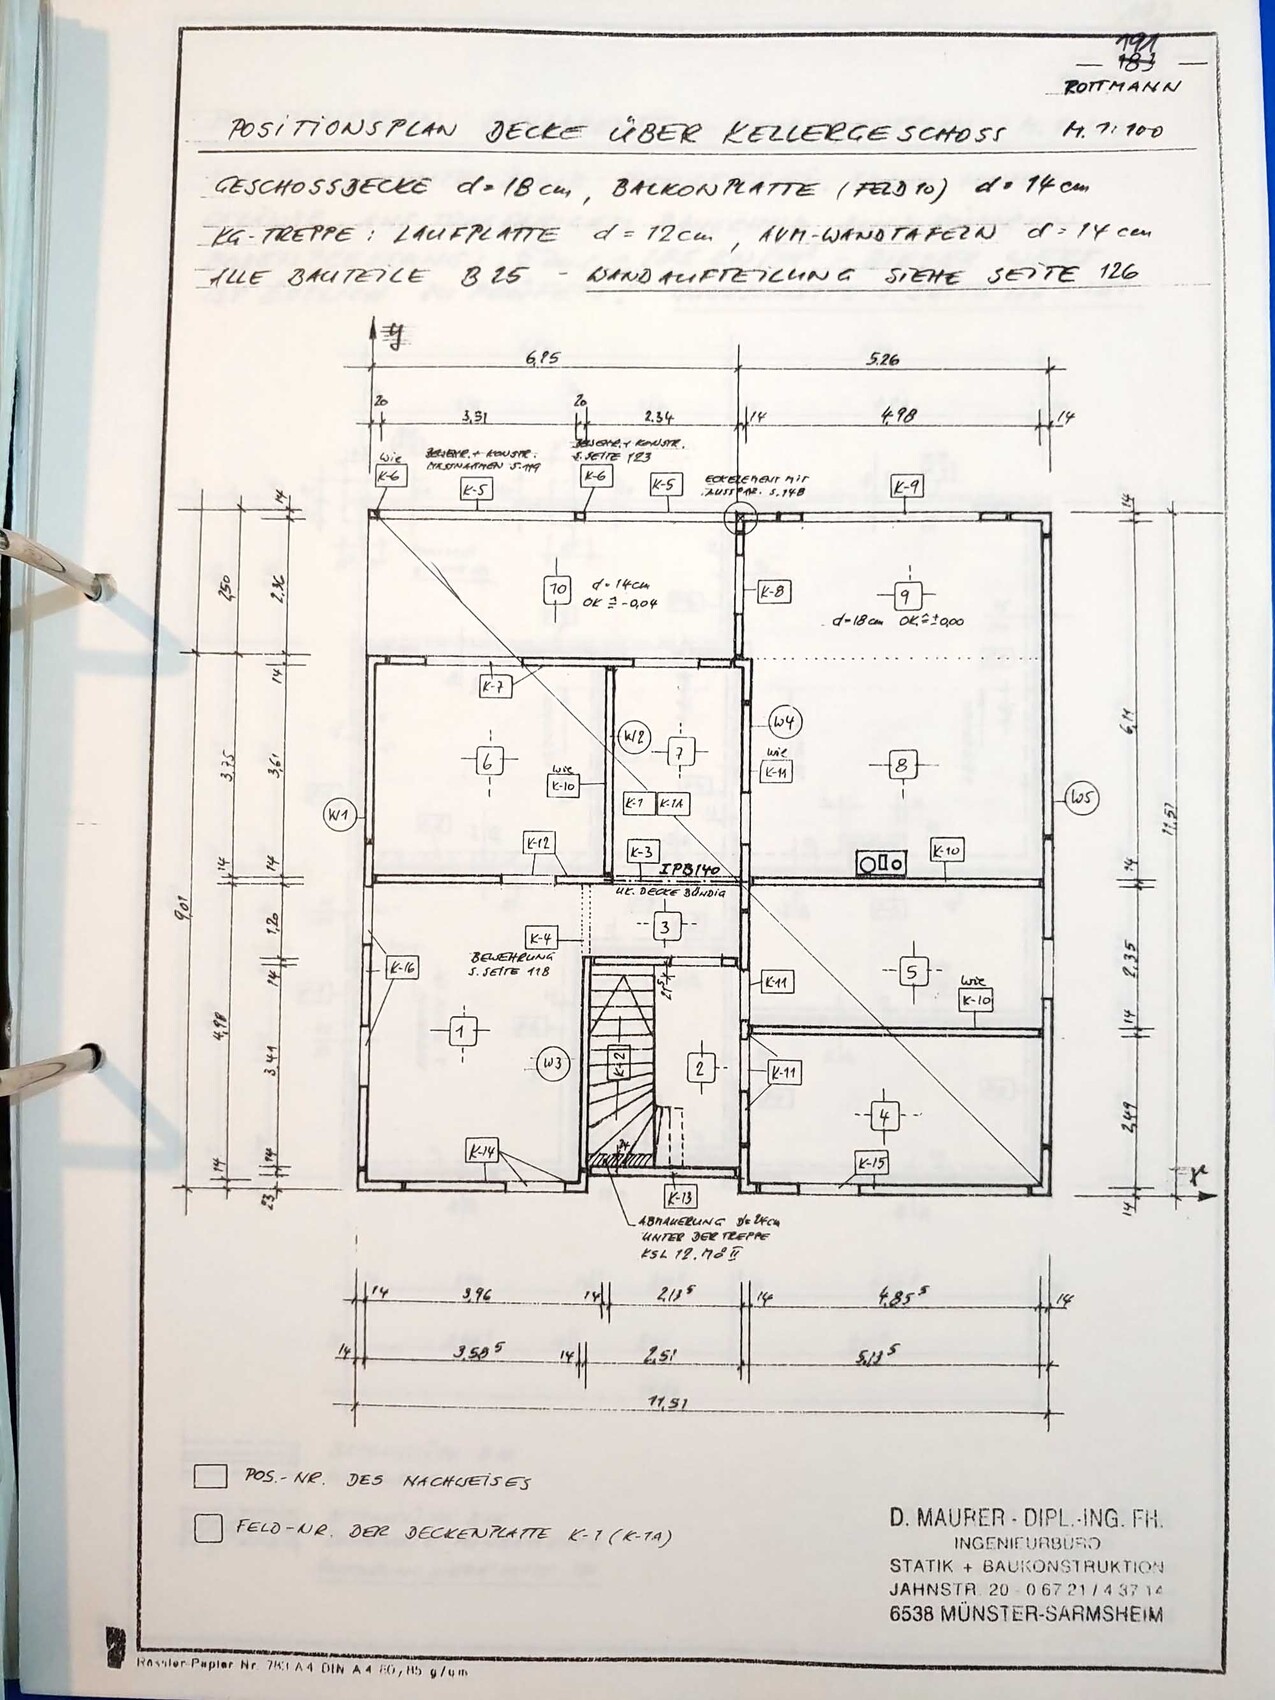 191
183
ROTTMANN
POSITIONSPLAN DECKE ÜBER KELLERGESCHOSS M. 1:100
GESCHOSSDECKE d=18cm, BALKONPLATTE (FELD 10) d=14cm
KG-TREPPE: LAUFPLATTE d=12cm, AVM-WANDTAFELN d=14cm
ALLE BAUTEILE B 25 - WANDAUFTEILUNG SIEHE SEITE 126
y
5.26
20 3,31 20 2.34 14 4,98 14
wie K-6
BEWEHR. + KONSTR.
MASSNAHMEN S. 119
K-5
BEWEHR. + KONSTR.
S. SEITE 123
K-6
K-5
ECKELEMENT MIT
AUSSPAR. S. 148
K-9
14
14
2,50
2,36
10
d=14cm
OK ≙ -0,04
K-8
9
d=18cm OK ≙ ±0,00
14
K-7
W1
6
wie
K-10
W2
7
W4
wie
K-11
8
W5
3,75
3,61
6,11
11,51
K-1
K-1A
K-12
K-3
IPB140
UK. DECKE BÜNDIG
K-10
14
14
14
9,01
1,20
K-4
3
BEWEHRUNG
S. SEITE 118
K-16
14
21⁵
K-11
5
wie
K-10
2.35
14
4,98
3,41
1
W3
K-12
2
K-11
4
2,49
K-14
24
K-15
14
14
23
K-13
x
14
ABMAUERUNG d=24cm
UNTER DER TREPPE
KSL 12.1.8 II
14 3,96 14 2,13⁵ 14 4.85⁵ 14
14 3,58⁵ 14 2,51 5,13⁵
11,51
POS.-NR. DES NACHWEISES
FELD-NR. DER DECKENPLATTE K-1 (K-1A)
D. MAURER - DIPL.-ING. FH.
INGENIEURBÜRO
STATIK + BAUKONSTRUKTION
JAHNSTR. 20 - 0 67 21 / 4 37 14
6538 MÜNSTER-SARMSHEIM
Rössler-Papier Nr. 783 A4 DIN A 4 80/85 g/qm